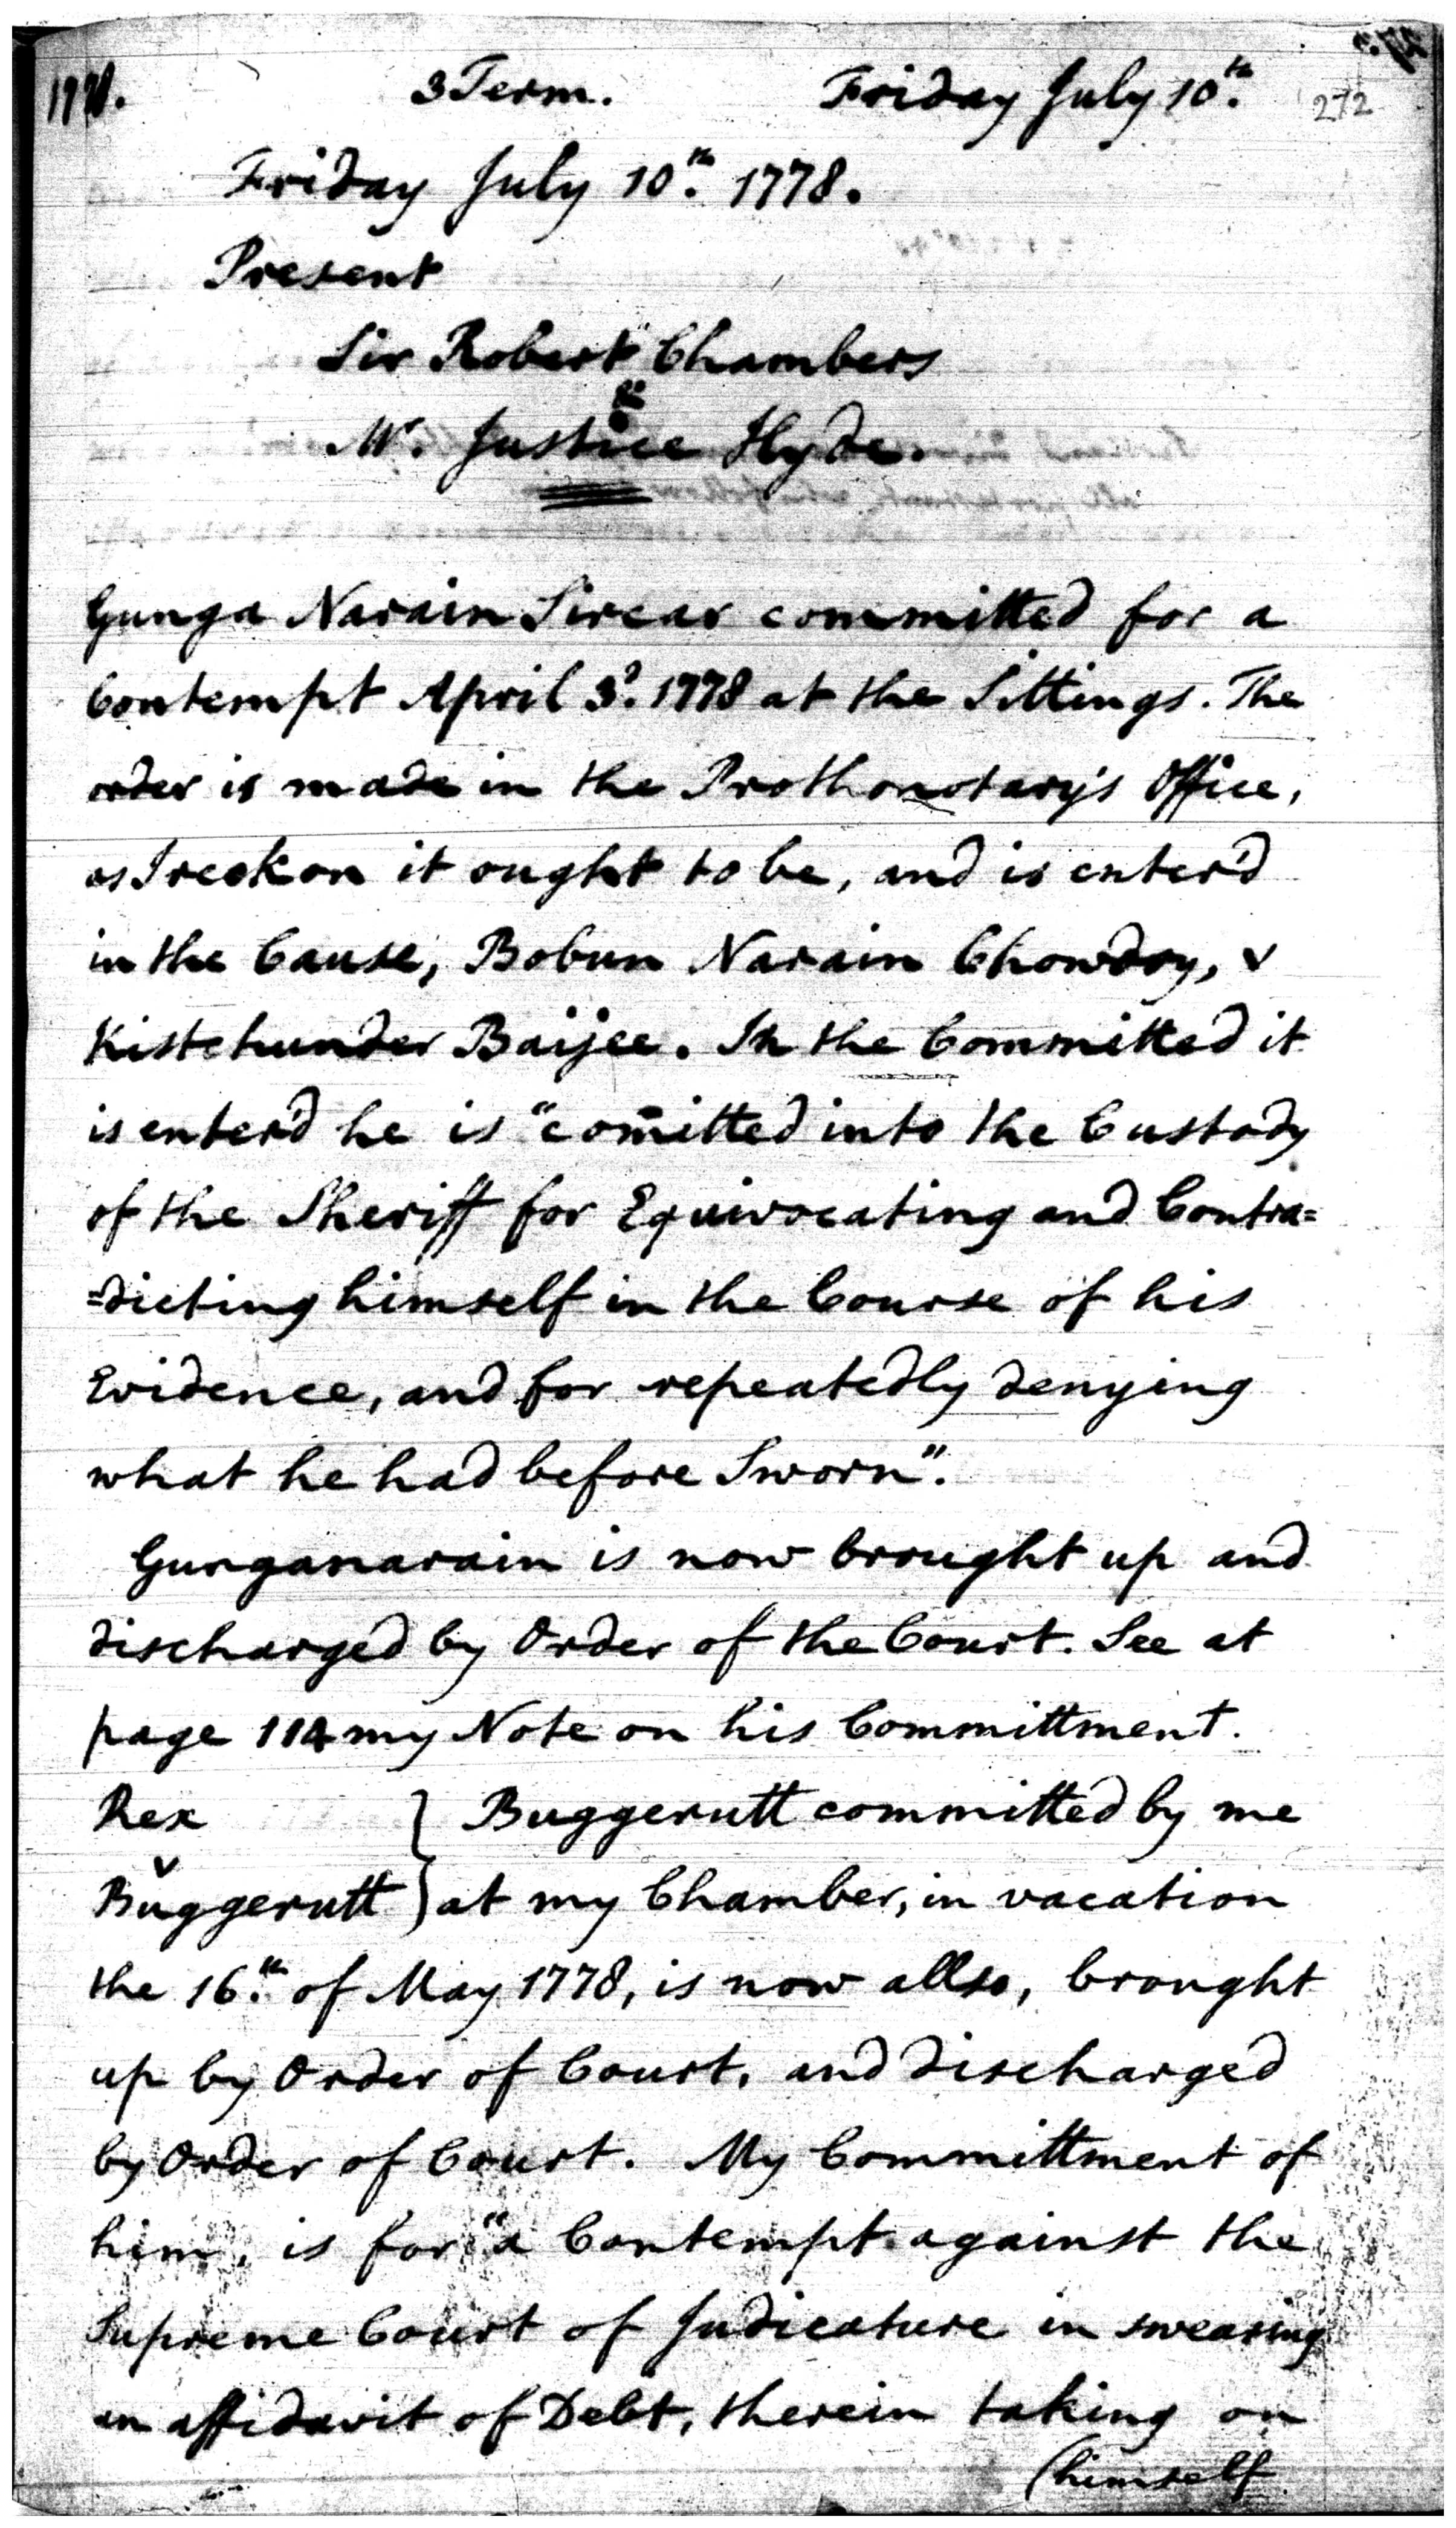 1778. 3 Term. Friday July 10th. 272
Friday July 10th. 1778.
Present
Sir Robert Chambers
&
Mr. Justice Hyde.
Gunga Narain Sircar committed for a
Contempt April 3d. 1778 at the Sittings. The
order is made in the Prothonotary's Office,
as I reckon it ought to be, and is enter'd
in the Cause, Bobun Narain Chowdry, v
Kistchunder Baijee. In the Committed it
is enter'd he is "com̄itted into the Custody
of the Sheriff for Equivocating and Contra=
=dicting himself in the Course of his
Evidence, and for repeatedly denying
what he had before Sworn".
Gunganarain is now brought up and
discharged by Order of the Court. See at
page 114 my Note on his Committment.
Rex } Buggerutt committed by me
v
Buggerutt } at my Chamber, in vacation
the 16th. of May 1778, is now allso, brought
up by Order of Court, and discharged
by Order of Court. My Committment of
him, is for "a Contempt against the
Supreme Court of Judicature in swearing
an affidavit of Debt, therein taking on
(himself